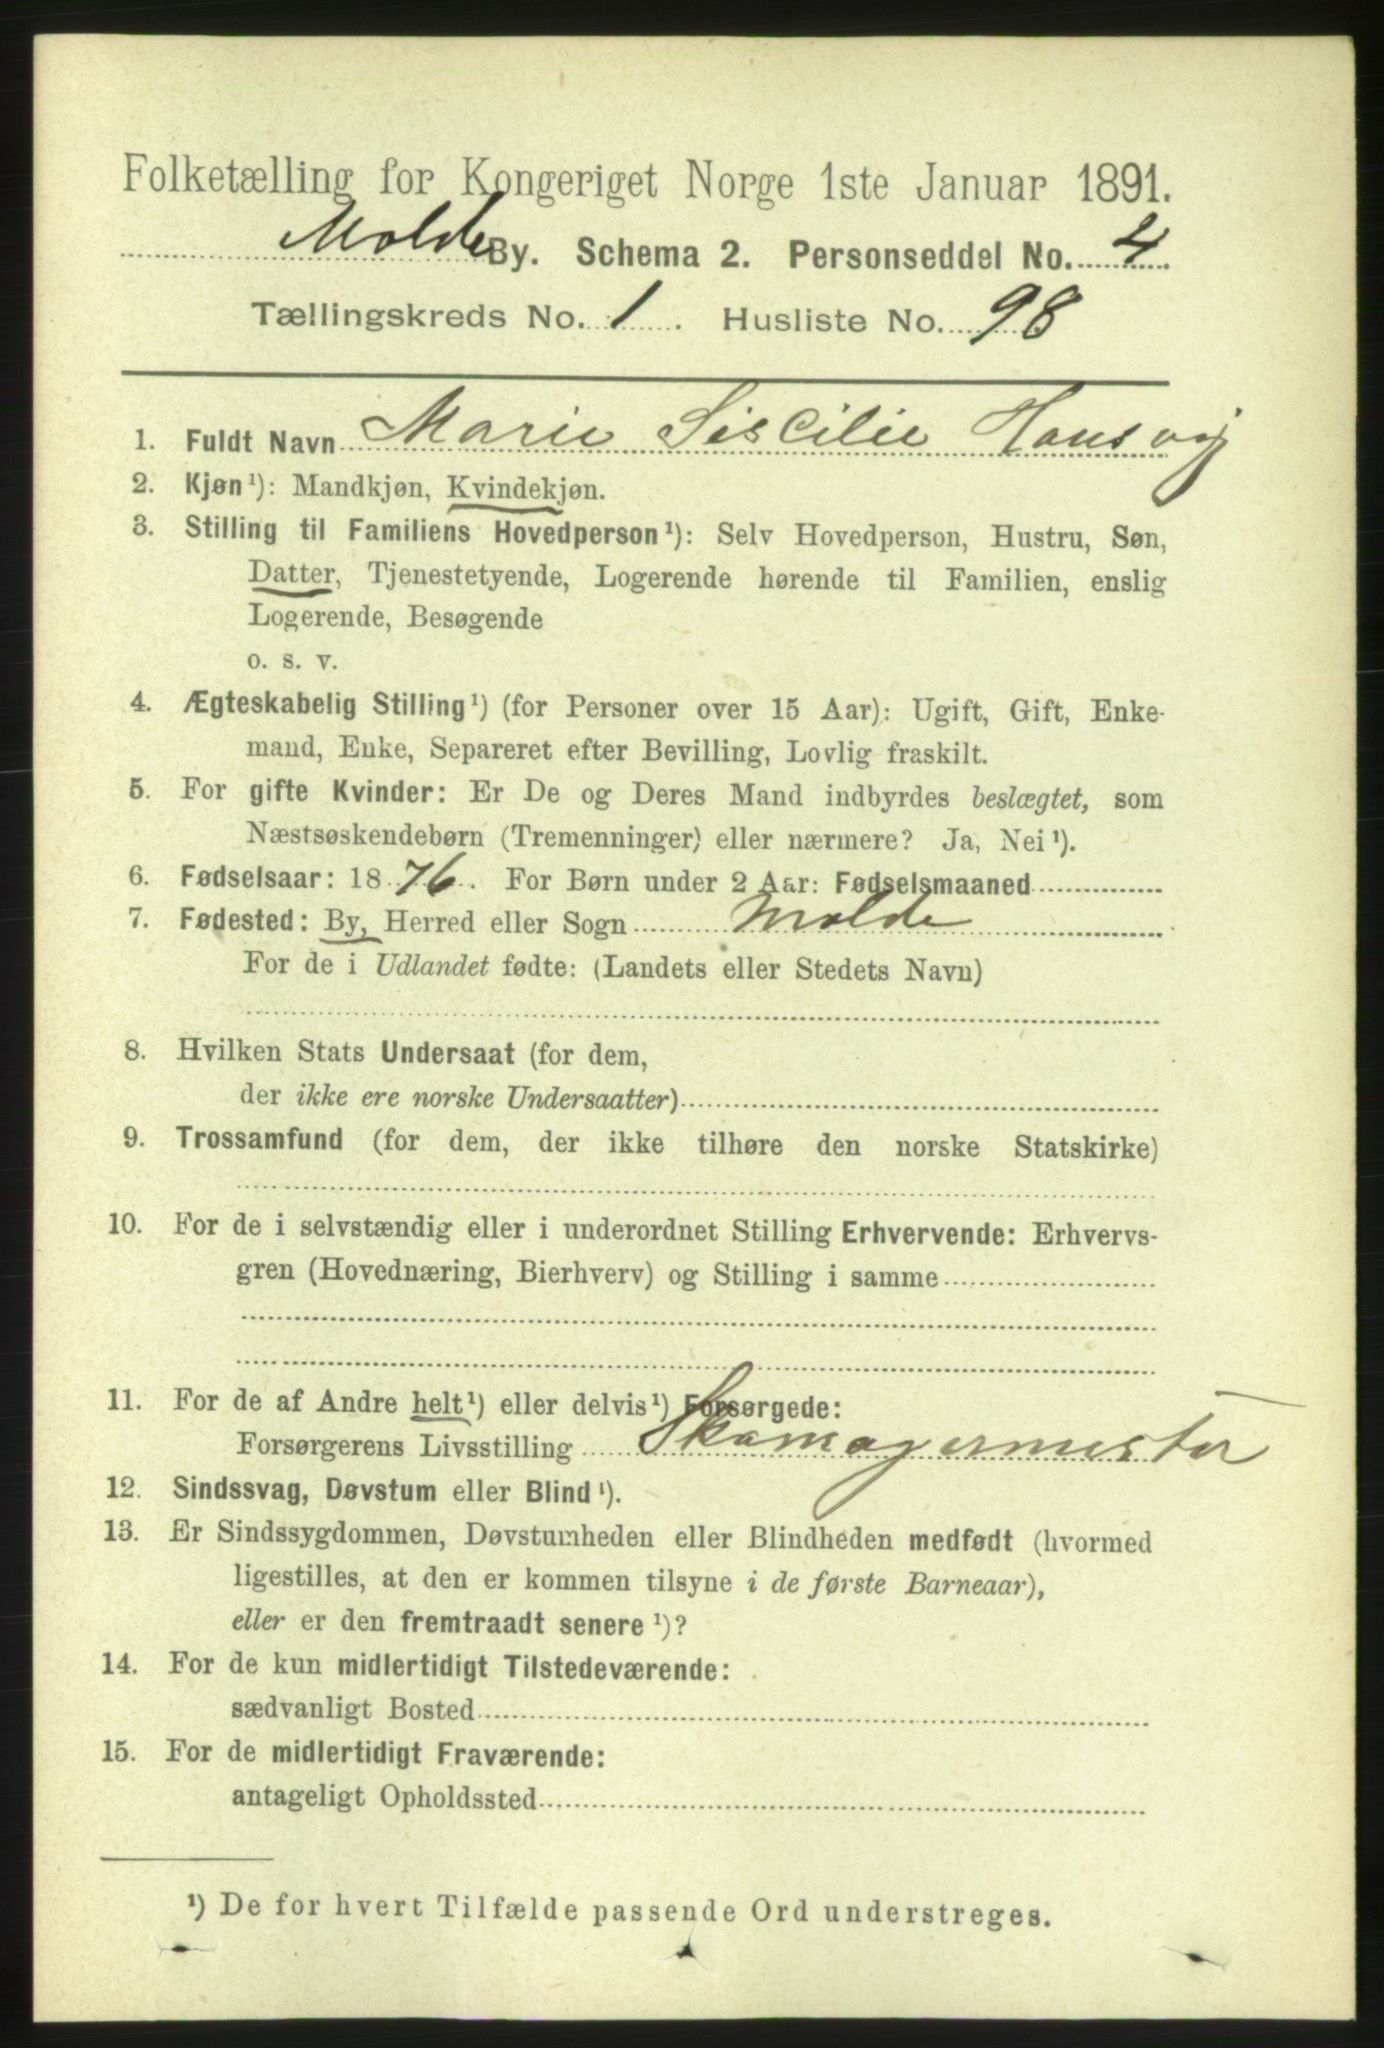 Folketælling for Kongeriget Norge 1ste Januar 1891.
Molde By. Schema 2. Personseddel No. 4
Tællingskreds No. 1. Husliste No. 98
1. Fuldt Navn Marie Siscilie Hansvig
2. Kjøn ¹): Mandkjøn, Kvindekjøn.
3. Stilling til Familiens Hovedperson ¹): Selv Hovedperson, Hustru, Søn,
Datter, Tjenestetyende, Logerende hørende til Familien, enslig
Logerende, Besøgende
o. s. v.
4. Ægteskabelig Stilling ¹) (for Personer over 15 Aar): Ugift, Gift, Enke-
mand, Enke, Separeret efter Bevilling, Lovlig fraskilt.
5. For gifte Kvinder: Er De og Deres Mand indbyrdes beslægtet, som
Næstsøskendebørn (Tremenninger) eller nærmere? Ja, Nei ¹).
6. Fødselsaar: 1876. For Børn under 2 Aar: Fødselsmaaned
7. Fødested: By, Herred eller Sogn Molde
For de i Udlandet fødte: (Landets eller Stedets Navn)
8. Hvilken Stats Undersaat (for dem,
der ikke ere norske Undersaatter)
9. Trossamfund (for dem, der ikke tilhøre den norske Statskirke)
10. For de i selvstændig eller i underordnet Stilling Erhvervende: Erhvervs-
gren (Hovednæring, Bierhverv) og Stilling i samme
11. For de af Andre helt ¹) eller delvis ¹) Forsørgede:
Forsørgerens Livsstilling Skomagermester
12. Sindssvag, Døvstum eller Blind ¹).
13. Er Sindssygdommen, Døvstumheden eller Blindheden medfødt (hvormed
ligestilles, at den er kommen tilsyne i de første Barneaar),
eller er den fremtraadt senere ¹)?
14. For de kun midlertidigt Tilstedeværende:
sædvanligt Bosted
15. For de midlertidigt Fraværende:
antageligt Opholdssted
¹) De for hvert Tilfælde passende Ord understreges.